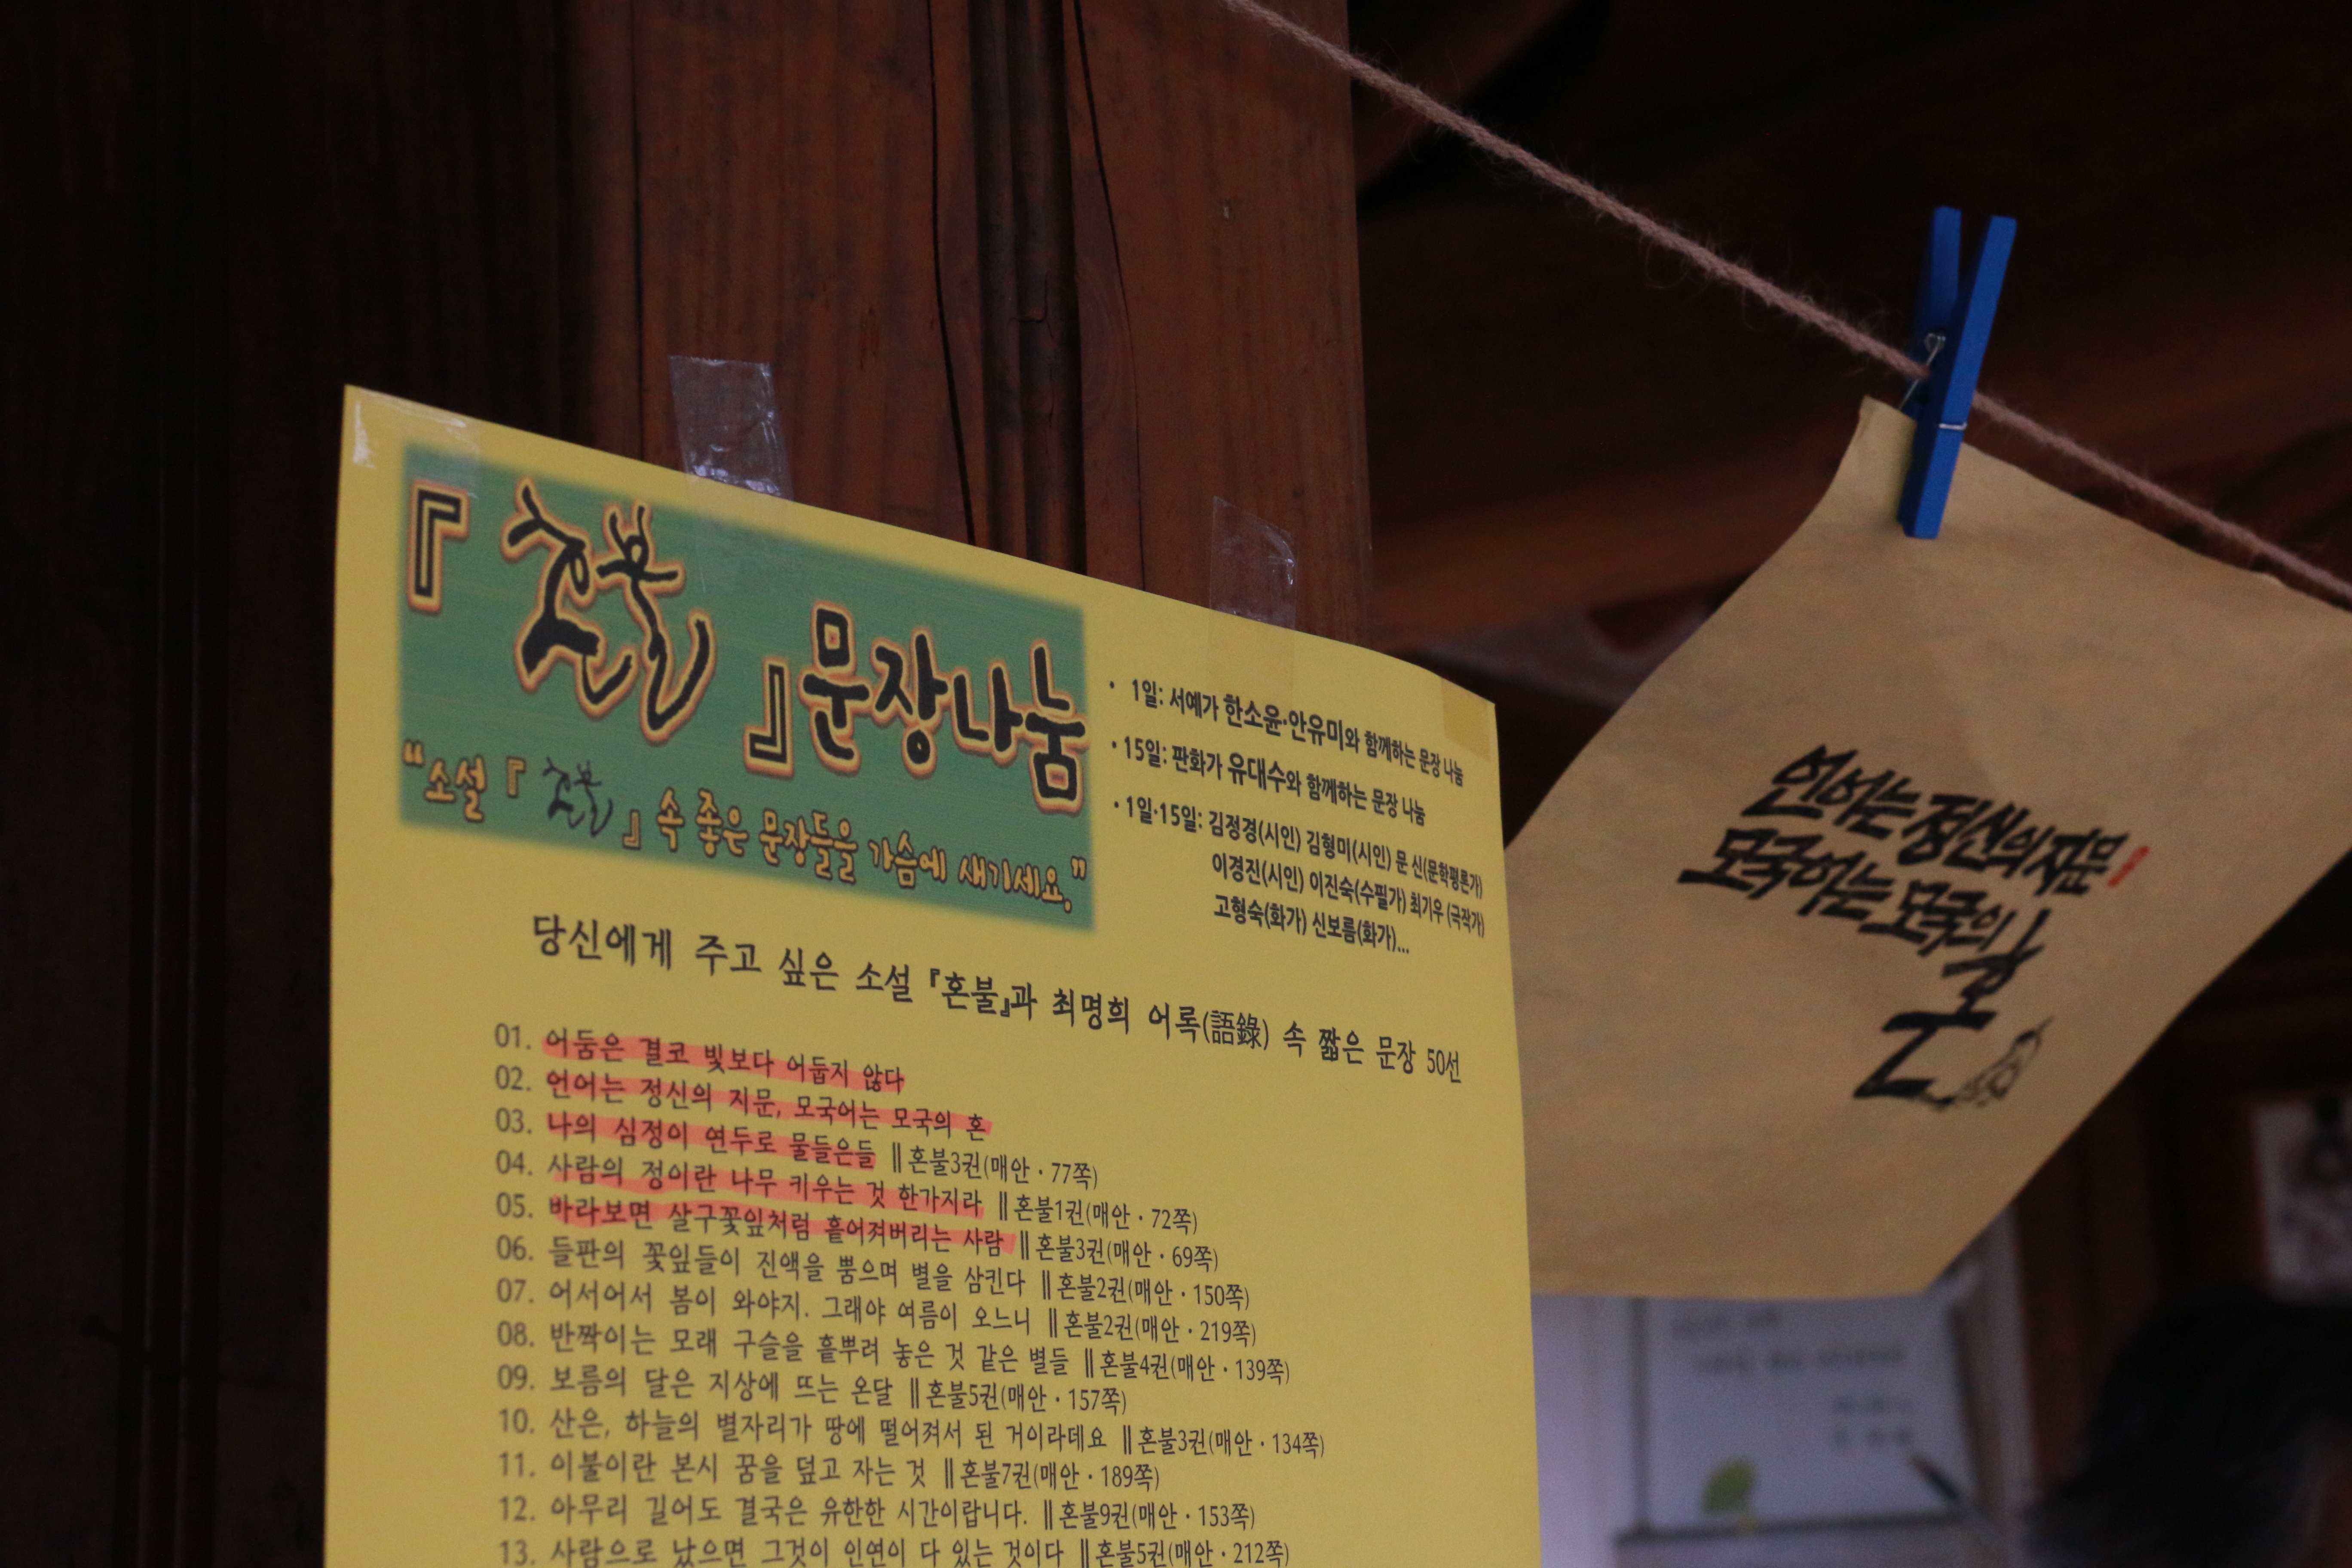 『혼불』문장나눔
“소설『혼불』속 좋은 문장들을 가슴에 새기세요.”
· 1일: 서예가 한소윤·안유미와 함께하는 문장 나눔
· 15일: 판화가 유대수와 함께하는 문장 나눔
· 1일·15일: 김정경(시인) 김형미(시인) 문 신(문학평론가)
이경진(시인) 이진숙(수필가) 최기우 (극작가)
고형숙(화가) 신보름(화가)...
당신에게 주고 싶은 소설『혼불』과 최명희 어록(語錄) 속 짧은 문장 50선
01. 어둠은 결코 빛보다 어둡지 않다
02. 언어는 정신의 지문, 모국어는 모국의 혼
03. 나의 심정이 연두로 물들은들 ∥혼불3권(매안 · 77쪽)
04. 사람의 정이란 나무 키우는 것 한가지라 ∥혼불1권(매안 · 72쪽)
05. 바라보면 살구꽃잎처럼 흩어져버리는 사람 ∥혼불3권(매안 · 69쪽)
06. 들판의 꽃잎들이 진액을 뿜으며 별을 삼킨다 ∥혼불2권(매안 · 150쪽)
07. 어서어서 봄이 와야지. 그래야 여름이 오느니 ∥혼불2권(매안 · 219쪽)
08. 반짝이는 모래 구슬을 흩뿌려 놓은 것 같은 별들 ∥혼불4권(매안 · 139쪽)
09. 보름의 달은 지상에 뜨는 온달 ∥혼불5권(매안 · 157쪽)
10. 산은, 하늘의 별자리가 땅에 떨어져서 된 거이라데요 ∥혼불3권(매안 · 134쪽)
11. 이불이란 본시 꿈을 덮고 자는 것 ∥혼불7권(매안 · 189쪽)
12. 아무리 길어도 결국은 유한한 시간이랍니다. ∥혼불9권(매안 · 153쪽)
13. 사람으로 났으면 그것이 인연이 다 있는 것이다 ∥혼불5권(매안 · 212쪽)
언어는 정신의 지문
모국어는 모국의
혼